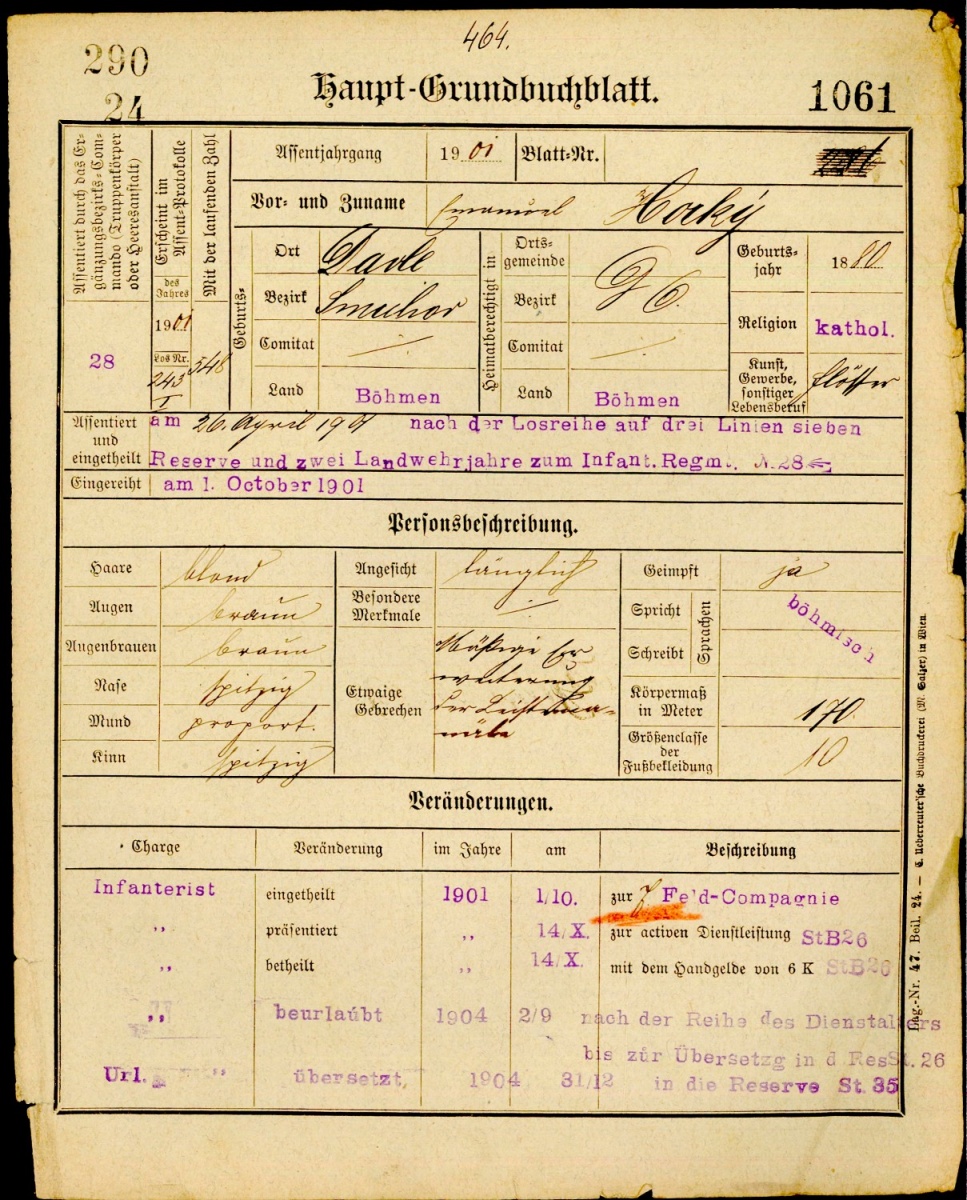 464.
290
24
Haupt-Grundbuchblatt.
1061
Assentiert durch das Er-
gänzungsbezirks-Com-
mando (Truppenkörper
oder Heeresanstalt)
28
Erscheint im
Assent-Protokolle
des
Jahres
1901
Los Nr.
243
I
Mit der laufenden Zahl
548
Assentjahrgang 1901 Blatt-Nr.
Vor- und Zuname Emanuel Hocký
Geburts-
Ort Davle
Bezirk Smichov
Comitat ./.
Land Böhmen
Heimatberechtigt in
Orts-
gemeinde
Bezirk
Comitat ./.
Land Böhmen
Geburts-
jahr 1880
Religion kathol.
Kunst,
Gewerbe,
sonstiger
Lebensberuf
Flößer
Assentiert
und
eingetheilt
am 26. April 1901 nach der Losreihe auf drei Linien sieben
Reserve und zwei Landwehrjahre zum Infant. Regmt. N.28
Eingereiht am 1. October 1901
Personsbeschreibung.
Haare blond
Augen braun
Augenbrauen braun
Nase spitzig
Mund proport.
Kinn spitzig
Angesicht länglich
Besondere
Merkmale ./.
Etwaige
Gebrechen
Mäßige Er-
weiterung
der Leisten-
Geimpft ja
Spricht
Schreibt
Sprachen
böhmisch
Körpermaß
in Meter 170
Größenclasse
der
Fußbekleidung
10
Veränderungen.
Charge Veränderung im Jahre am Beschreibung
Infanterist eingetheilt 1901 1/10. zur 7. Feld-Compagnie
,, präsentiert ,, 14/X. zur activen Dienstleistung StB26
,, betheilt ,, 14/X. mit dem Handgelde von 6 K StB26
,, beurlaubt 1904 2/9 nach der Reihe des Dienstalters
bis zur Übersetzg in d ResSt. 26
Url. ,, übersetzt, 1904 31/12 in die Reserve St. 35
Lag.-Nr. 47. Beil. 24. — C. Ueberreuter'sche Buchdruckerei (M. Salzer) in Wien.